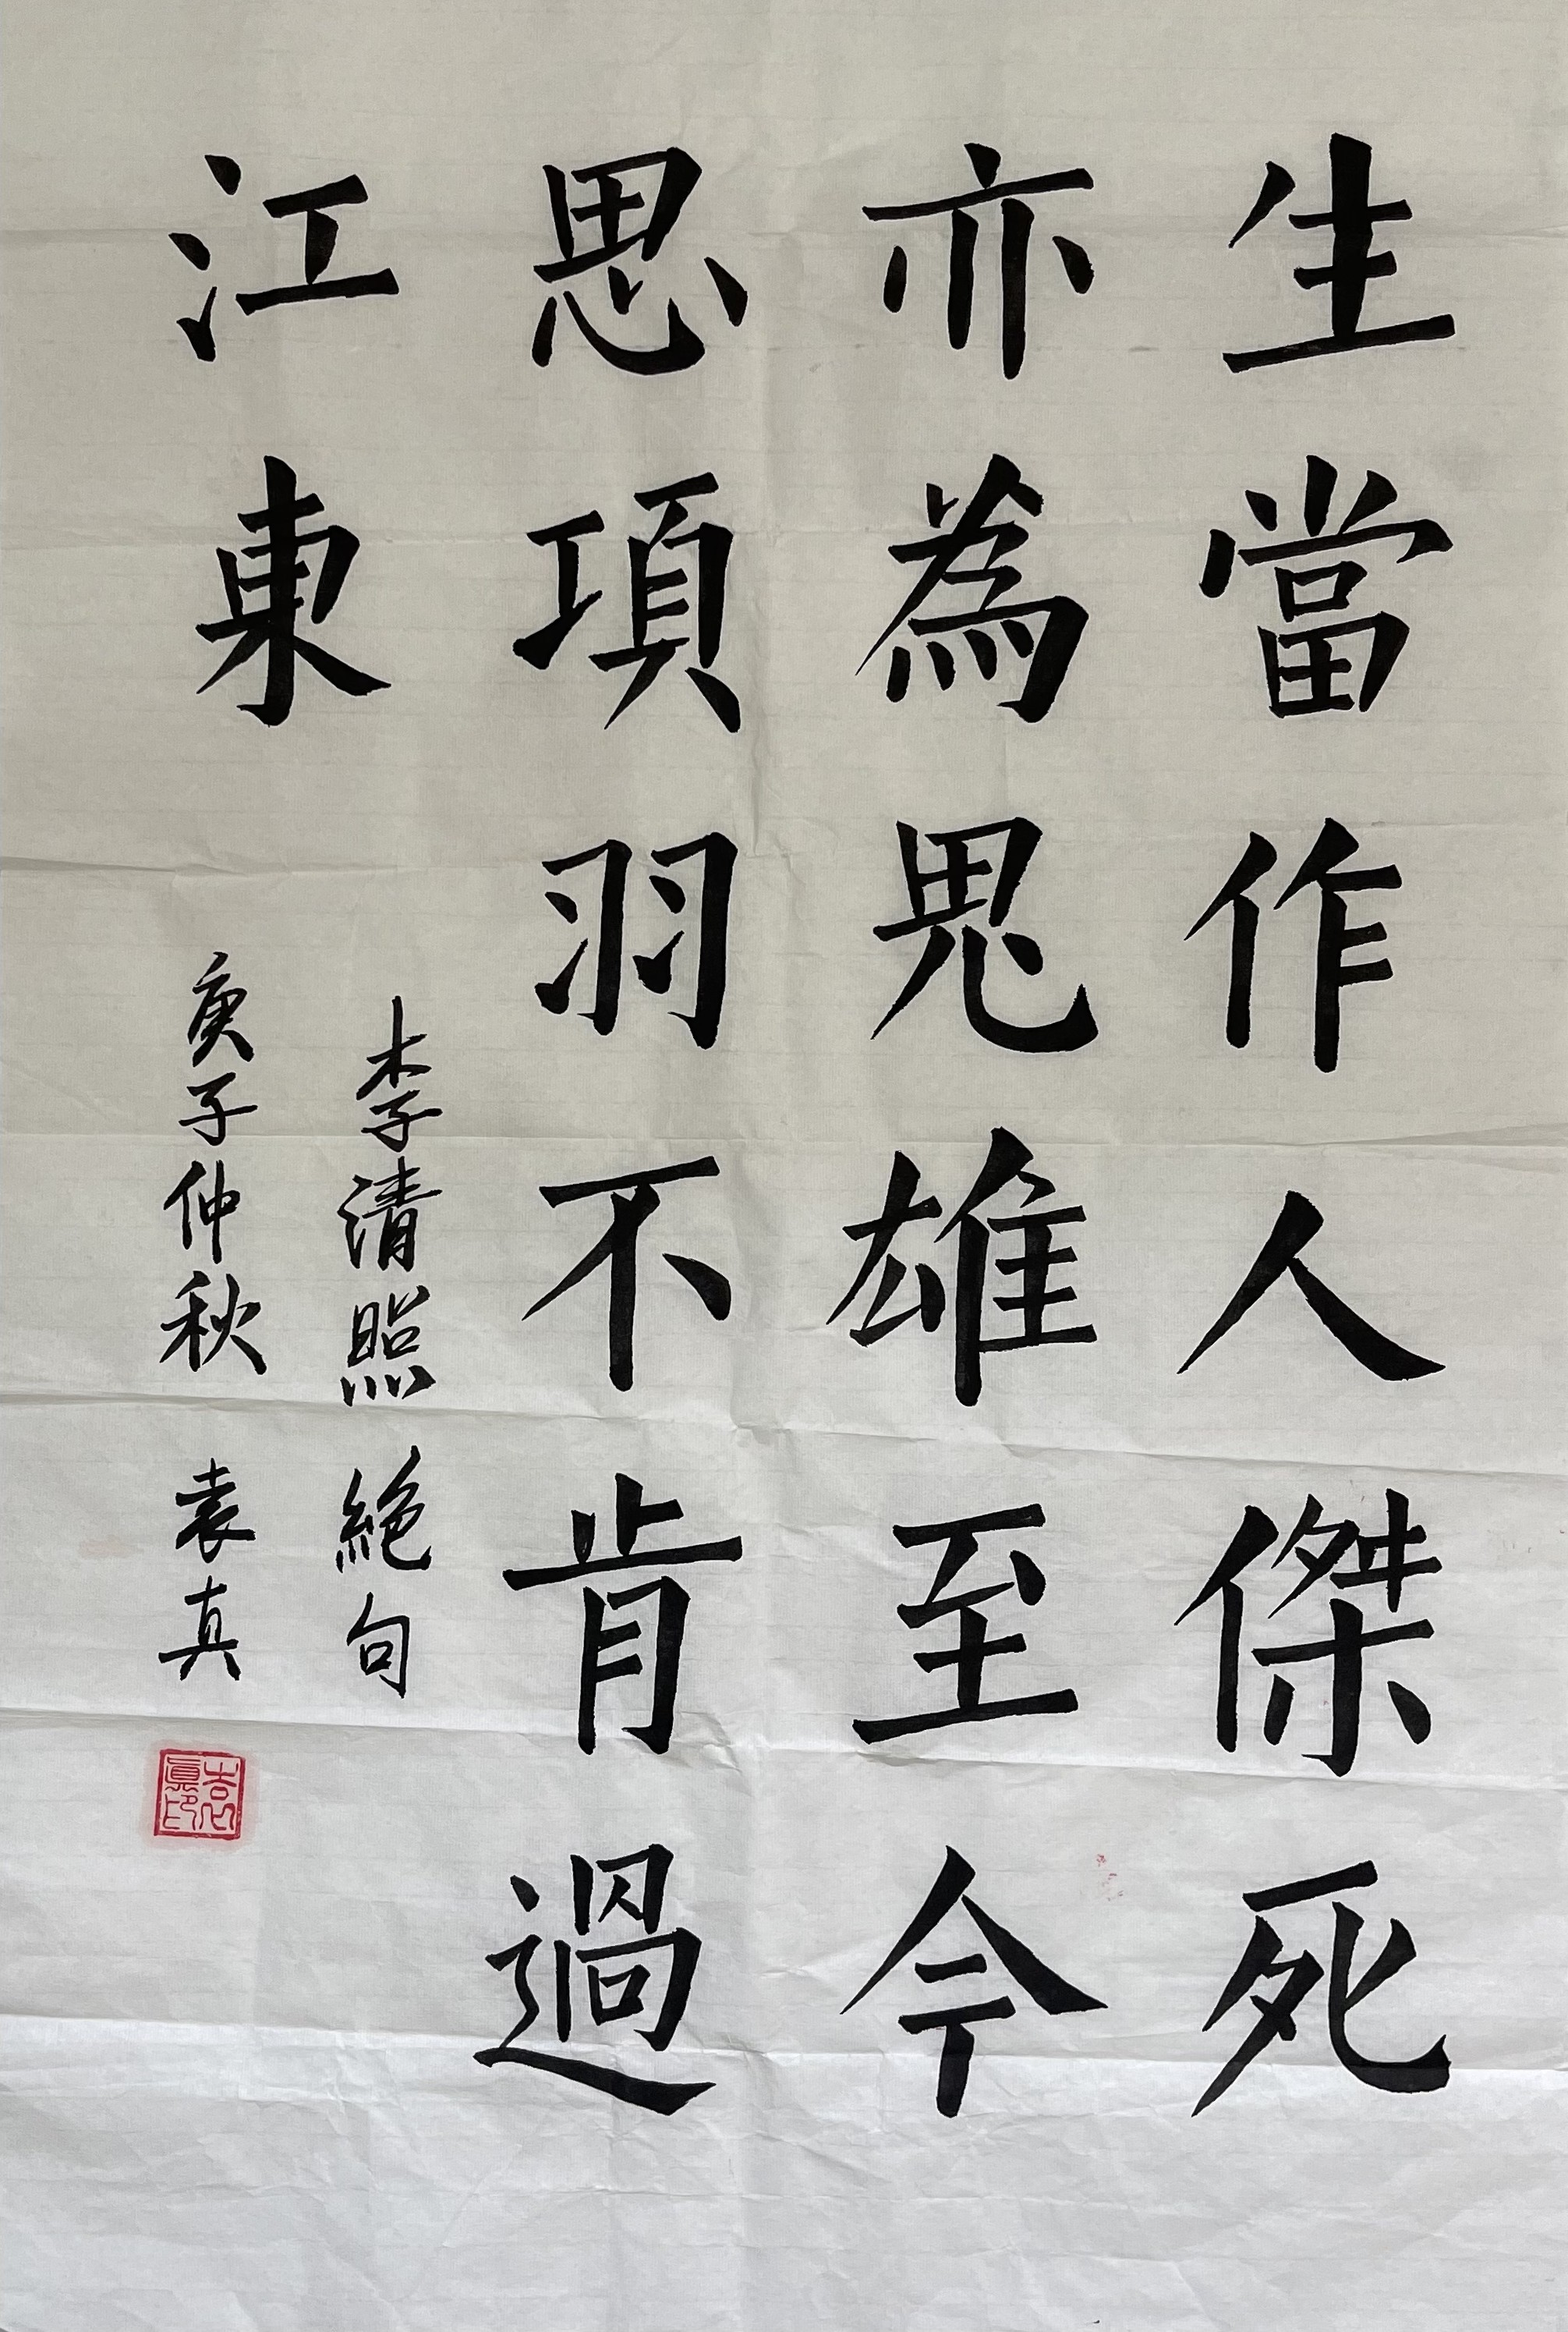 生當作人傑死
亦為鬼雄至今
思項羽不肯過
江東
李清照絕句
庚子仲秋 袁真
袁真印